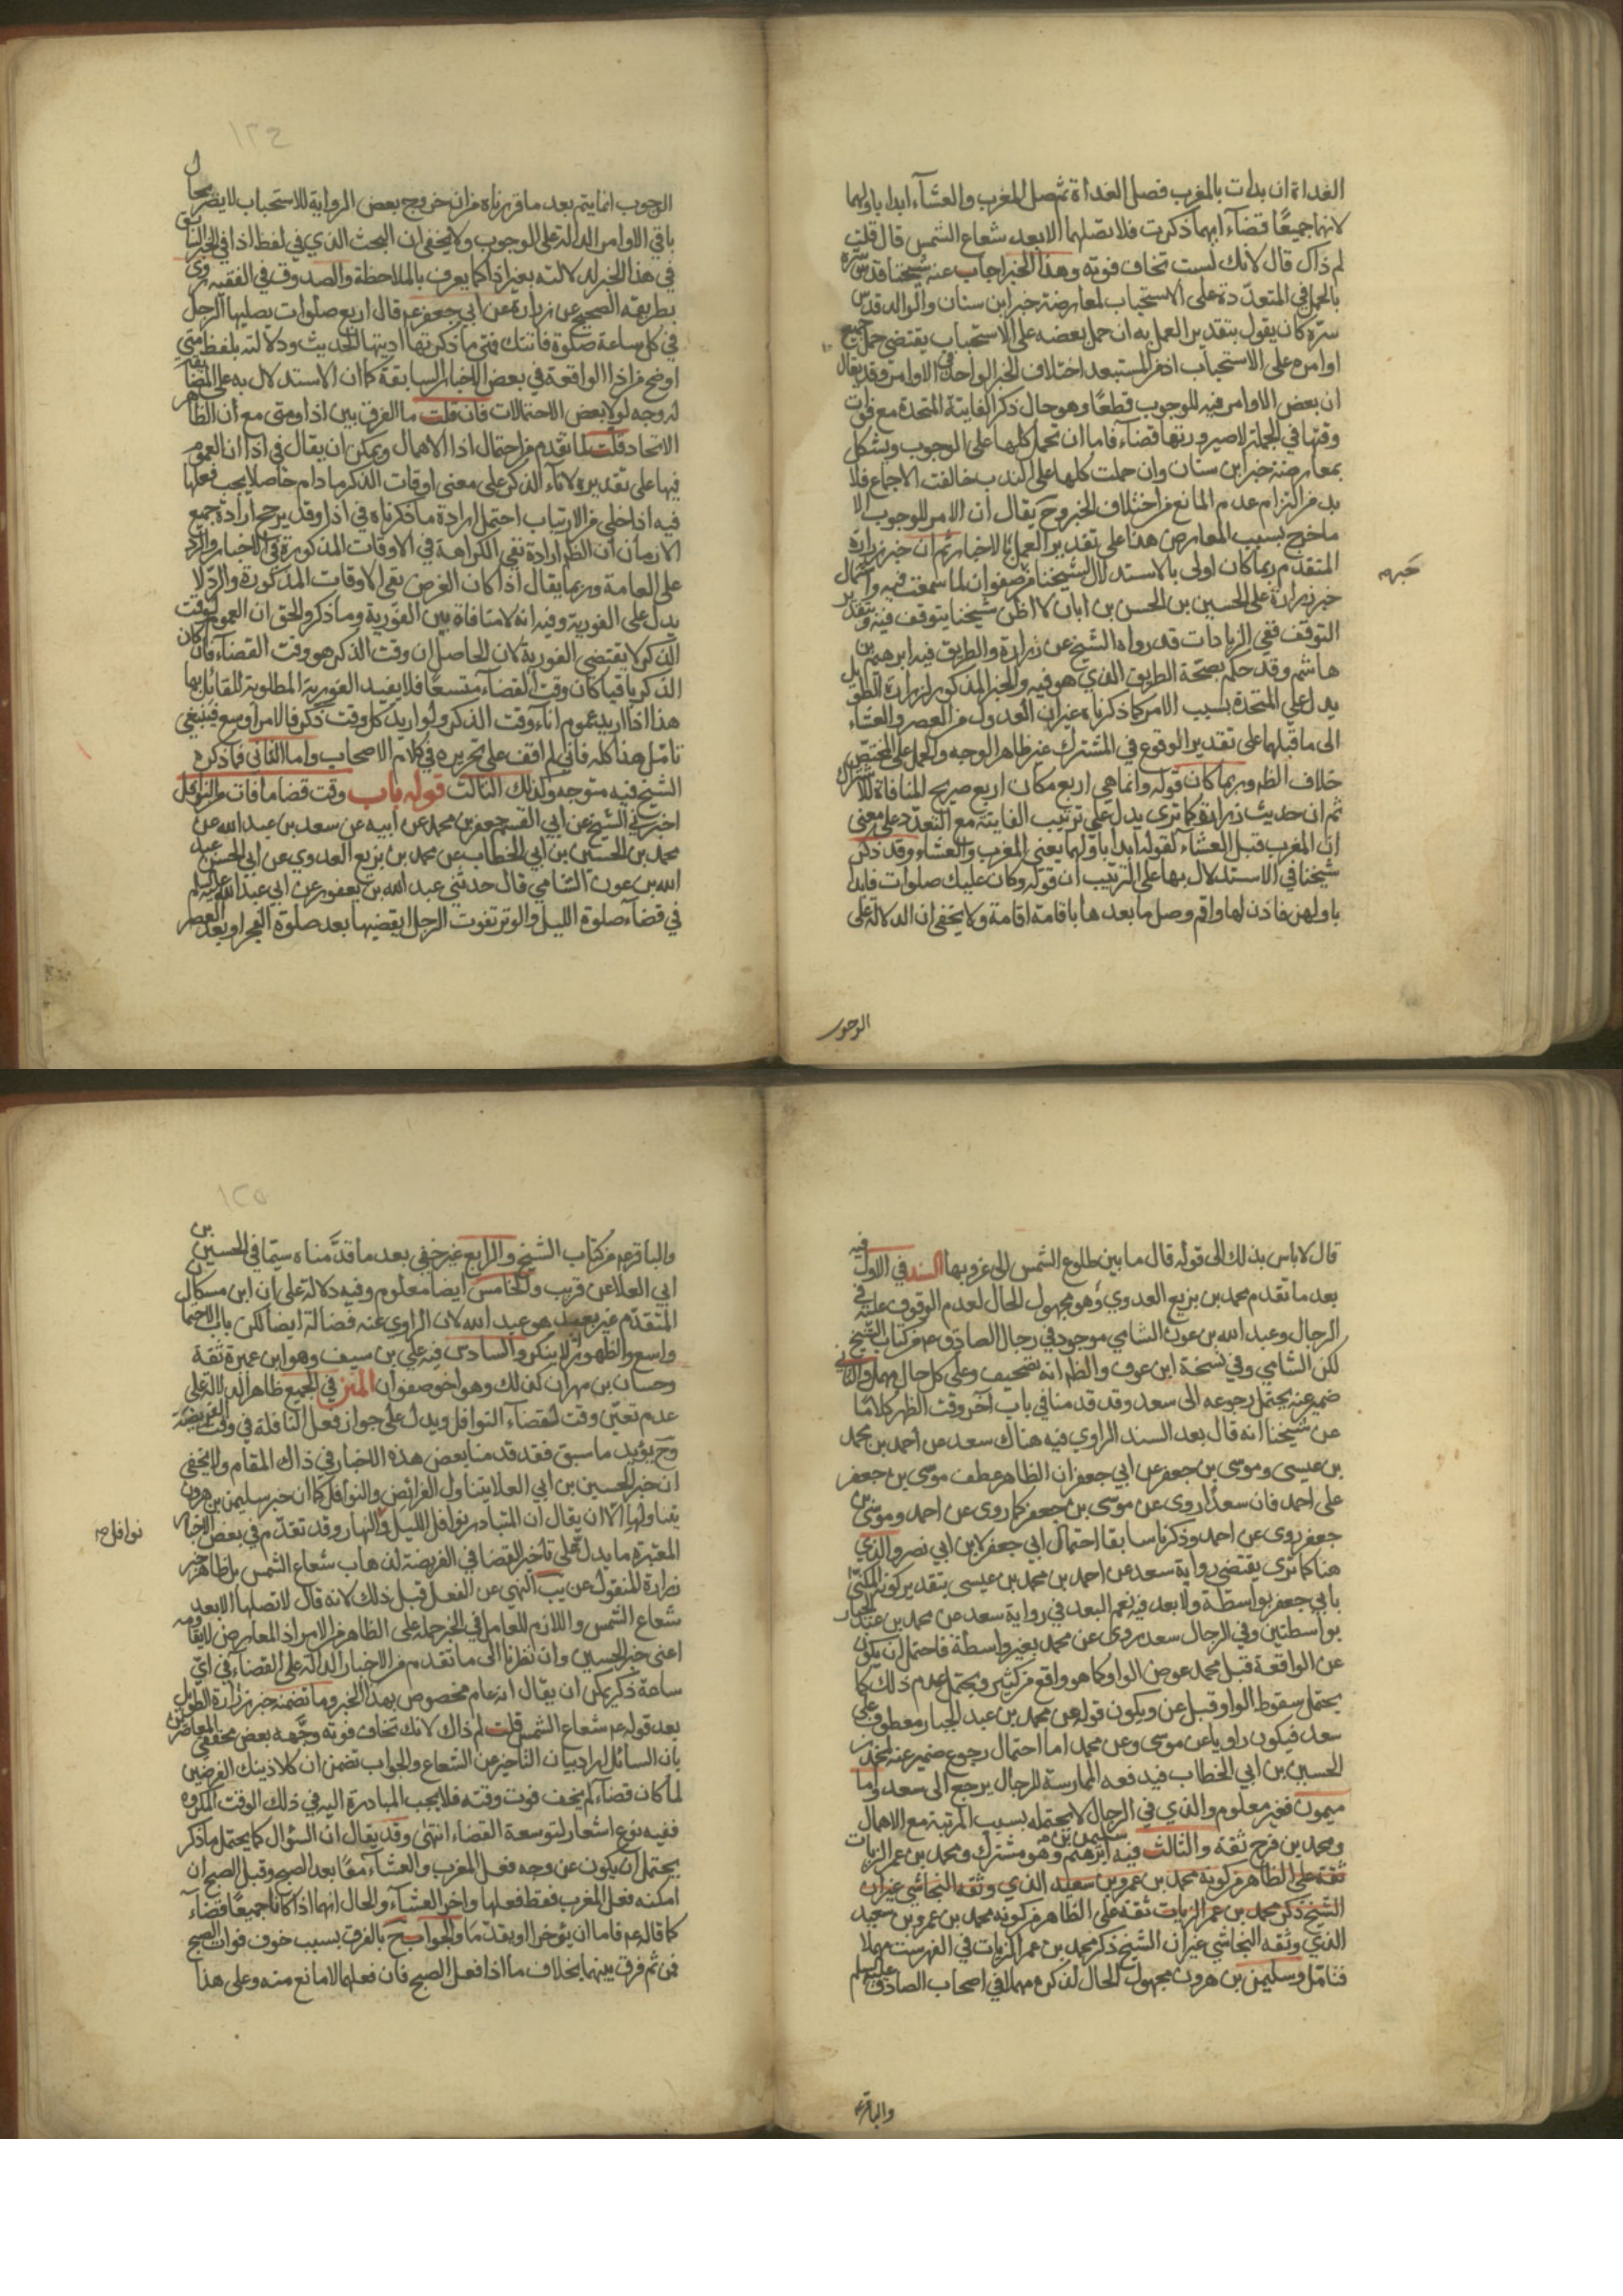 الغداة ان بدات بالمغرب فصل الغداة ثم صل المغرب والعشآء ابدا باولهما
لانهما جميعًا قضآء ايهما ذكرت فلا تصلهما الا بعد شعاع الشمس قال قلت
لم ذاك قال لانك لست تخاف فوته وهذا الخبر اجاب عنه شيخنا قدس سره
بالحمل في المتعدّدة على الاستحباب لمعارضة خبر ابن سنان والوالد قدس
سرّه كان يقول بتقدير العمل به ان حمل بعضه على الاستحباب يقتضي حمل جميع
اوامره على الاستحباب اذ من المستبعد اختلاف الخبر الواحد في الاوامر وقد يقال
ان بعض الاوامر فيه للوجوب قطعًا وهو حال ذكر الفايتة المتحدة مع فوات
وقتها في الجملة لصيرورتها قضآء فاما ان تحمل كلها على الوجوب ويشكل
بمعارضة خبر ابن سنان وان حملت كلها على الندب خالفت الاجماع فلا
بد من التزام عدم المانع من اختلاف الخبر وح يقال ان الامر للوجوب الا
ما خرج بسبب المعارض هذا على تقدير العمل بالاخبار ثم ان خبر زرارة
المتقدّم ربما كان اولى بالاستدلال لشيخنا من صفوان لما سمعت فيه واشتمال
خبر زرارة على الحسين بن الحسن بن ابان لا اظن شيخنا يتوقف فيه وبتقدير
التوقف ففي الزيادات قد رواه الشيخ عن زرارة والطريق فيه ابرهيم بن
هاشم وقد حكم بصحة الطريق الذي هو فيه والخبر المذكور لزرارة الطويل
يدل على المتحدة بسبب الامر كما ذكرناه غير ان العدول من العصر والعشاء
الى ما قبلهما على تقدير الوقوع في المشترك غير ظاهر الوجه والحمل على المختص
خلاف الظ وربما كان قوله وانما هي اربع مكان اربع صريح المنافاة للاشتراك
ثم ان حديث زرارة كما ترى يدل على ترتيب الفايتة مع التعدّد على معنى
ان المغرب قبل العشاء لقوله ابدا باولهما يعني المغرب والعشاء وقد ذكر
شيخنا في الاستدلال بها على الترتيب ان قوله وكان عليك صلوات فابدا
باولهن فاذن لها واقم وصل ما بعدها باقامة اقامة ولا يخفى ان الدلالة على
خبر صح
الوجوب
الوجوب انما يتم بعد ما قررناه من ان خروج بعض الرواية للاستحباب لا يضر بحال
باقي الاوامر الدالة على الوجوب ولا يخفى ان البحث الذي في لفظ اذا في الخبر السابق
في هذا الخبر لدلالته بغير اذا كما يعرف بالملاحظة والصدوق في الفقيه روى
بطريقه الصحيح عن زرارة عن ابي جعفر عم قال اربع صلوات يصليها الرجل
في كل ساعة صلوة فاتتك فمتى ما ذكرتها اديتها الحديث ودلالته بلفظ متى
اوضح من اذا الواقعة في بعض الاخبار السابقة كما ان الاستدلال به على المضايقة
له وجه لولا بعض الاحتمالات فان قلت ما الفرق بين اذا ومتى مع ان الظاهر
الاتحاد قلت لما تقدم من احتمال اذا الاهمال ويمكن ان يقال في اذا ان العموم
فيها على تقديره لانآء الذكر على معنى اوقات الذكر ما دام حاصلا يجب فعلها
فيه اذا خلي من الارتياب احتمل ارادة ما ذكرناه في اذا وقد يرجح ارادة جميع
الازمان ان الظ ارادة نفي الكراهة في الاوقات المذكورة في الاخبار والرد
على العامة وربما يقال اذا كان الغرض نفي الاوقات المذكورة والرد لا
يدل على الفورية وفيه انه لا منافاة بين الفورية وما ذكر والحق ان العموم لوقت
الذكر لا يقتضي الفورية لان الحاصل ان وقت الذكر هو وقت القضآء فان كان
الذكر باقيا كان وقت القضاء متسعًا فلا يفيد الفورية المطلوبة للقائل بها
هذا اذا اريد عموم انآء وقت الذكر ولو اريد كل وقت ذكر فالامر اوسع فينبغي
تامل هذا كله فاني لم اقف على تحريره في كلام الاصحاب واما الثاني فما ذكره
الشيخ فيه متوجه وكذلك الثالث قوله باب وقت قضا ما فات من النوافل
اخبرني الشيخ عن ابي القسم جعفر بن محمد عن ابيه عن سعد بن عبد الله عن
محمد بن الحسين بن ابي الخطاب عن محمد بن بزيع العدوي عن ابي الحسن عبد
الله بن عون الشامي قال حدثني عبد الله بن يعفور عن ابي عبد الله عليه السلم
في قضآء صلوة الليل والوتر تفوت الرجل ايقضيها بعد صلوة الفجر او بعد العصر
قال لا باس بذلك الى قوله قال ما بين طلوع الشمس الى غروبها السند في الاول فيه
بعد ما تقدم محمد بن بزيع العدوي وهو مجهول الحال لعدم الوقوف عليه في
الرجال وعبد الله بن عون الشامي موجود في رجال الصادق عم من كتاب الشيخ
لكن الشامي وفي نسخة ابن عوف والظ انه تصحيف وعلى كل حال مهمل والثاني
ضمير عنه يحتمل رجوعه الى سعد وقد قدمنا في باب آخر وقت الظهر كلامًا
عن شيخنا انه قال بعد السند الراوي فيه هناك سعد عن احمد بن محمد
بن عيسى وموسى بن جعفر عن ابي جعفر ان الظاهر عطف موسى بن جعفر
على احمد فان سعدًا روى عن موسى بن جعفر كما روى عن احمد وموسى بن
جعفر روى عن احمد وذكرنا سابقا احتمال ابي جعفر لابن ابي نصر والذي
هنا كما ترى يقتضي رواية سعد عن احمد بن محمد بن عيسى بتقدير كونه المكنى
بابي جعفر بواسطة ولا بعد فيه نعم البعد في رواية سعد عن محمد بن عبد الجبار
بواسطتين وفي الرجال سعد روى عن محمد بغير واسطة فاحتمل ان يكون
عن الواقعة قبل محمد عوض الواو كما هو واقع من كثير ويحتمل عدم ذلك كما
يحتمل سقوط الواو قبل عن ويكون قوله عن محمد بن عبد الجبار معطوف على
سعد فيكون راويا عن موسى وعن محمد اما احتمال رجوع ضمير عنه لمحمد بن
الحسين بن ابي الخطاب فيدفعه الممارسة للرجال يرجع الى سعد واما
ميمون فغير معلوم والذي في الرجال لا يحتمله بسبب المرتبة مع الاهمال
ومحمد بن فرج ثقة والثالث فيه ابرهيم وهو مشترك ومحمد بن عمر الزيات
ثقة على الظاهر من كونه محمد بن عمرو بن سعيد الذي وثقه النجاشي غير ان
الشيخ ذكر محمد بن عمر الزيات ثقة على الظاهر من كونه محمد بن عمرو بن سعيد
الذي وثقه النجاشي غير ان الشيخ ذكر محمد بن عمر الزيات في الفهرست مهملا
فتامل وسليمن بن هرون مجهول الحال لذكره مهملا في اصحاب الصادق عليه السلم
والباقر عم
والباقر عم من كتاب الشيخ والرابع غير خفي بعد ما قدّمناه سيما في الحسين بن
ابي العلا عن قريب والخامس ايضا معلوم وفيه دلالة على ان ابن مسكان
المتقدّم غير بعيد هو عبد الله لان الراوي عنه فضالة ايضا لكن باب الاحتمال
واسع والظهور لا ينكر والسادس فيه علي بن سيف وهو ابن عميرة ثقة
وحسان بن مهران كذلك وهو اخو صفوان المتن في الجميع ظاهر الدلالة على
عدم تعيّن وقت لقضآء النوافل ويدل على جواز فعل النافلة في وقت الفريضة
وح يؤيد ما سبق فقد قدمنا بعض هذه الاخبار في ذاك المقام ولا يخفى
ان خبر الحسين بن ابي العلا يتناول الفرائض والنوافل كما ان خبر سليمن بن هرون
يتناولها الا ان يقال ان المتبادر نوافل الليل والنهار وقد تقدّم في بعض الاخبار
المعتبرة ما يدل على تاخير القضا في الفريضة لذهاب شعاع الشمس بل ظاهر خبر
زرارة المنقول عن يب النهي عن الفعل قبل ذلك لانه قال لا تصلها الا بعد
شعاع الشمس واللازم للعامل في الخبر حمله على الظاهر من الامر اذ المعارض لا يقاومه
اعني خبر الحسين وان نظرنا الى ما تقدم من الاخبار الدالة على القضاء في اي
ساعة ذكر يمكن ان يقال انه عام مخصوص بهذا الخبر وما تضمنه خبر زرارة الطويل
بعد قوله عم شعاع الشمس قلت لم ذاك لانك تخاف فوته وجّهه بعض محققي المعاصرين
بان السائل اراد بيان التاخير عن الشعاع والجواب تضمن ان كلا ذينك الفرضين
لما كان قضآء لم يخف فوت وقته فلا يجب المبادرة اليه في ذلك الوقت المكروه
ففيه نوع اشعار لتوسعة القضاء انتهى وقد يقال ان السؤال كما يحتمل ما ذكر
يحتمل ان يكون عن وجه فعل المغرب والعشآء معًا بعد الصبح وقبل الصبح ان
امكنه فعل المغرب فقط فعلها واخر العشآء والحال انهما اذا كانا جميعًا قضآء
كما قاله عم فاما ان يؤخرا او يقدما والجواب ح بالفرق بسبب خوف فوات الصبح
فمن ثم فرق بينهما بخلاف ما اذا فعل الصبح فان فعلهما لا مانع منه وعلى هذا
نوافل صح